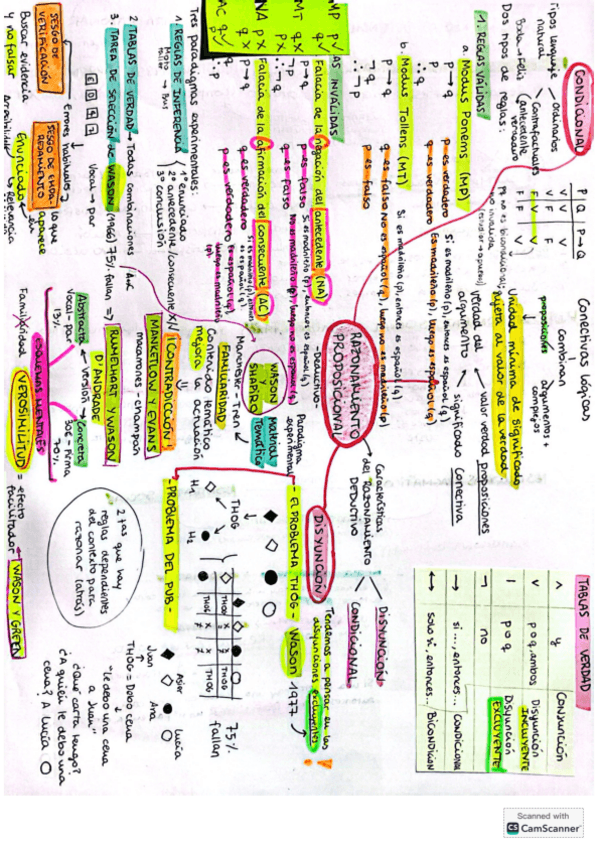 Conectivas lógicas
combinan
proposiciones
argumentos + complejos
Unidad mínima de significado
sujeta al valor de la verdad
verdad del argumento
valor verdad proposiciones
significado conectiva
TABLAS DE VERDAD
∧ y CONJUNCIÓN
∨ p o q, ambos Disyunción INCLUYENTE
p o q Disyunción EXCLUYENTE
¬ no
→ si..., entonces... CONDICIONAL
↔ solo si, entonces... BICONDICIÓN
CONDICIONAL
P Q P→Q
V V V
V F F
F V V
F F V
Tipos lenguaje
ordinarios
natural
contrafactuales
(antecedente verdadero
Dos tipos de reglas:
1. REGLAS VÁLIDAS
a. Modus Ponens (MP)
p→q
p
∴ q
p es verdadero
q es verdadero
Si es madrileño (p), entonces es español (q)
Es madrileño (p), luego es español (q)
b. Modus Tollens (MT)
p→q
¬q
∴ ¬p
q es falso
p es falso
Si es madrileño (p), entonces es español (q)
No es español (q), luego no es madrileño (p)
REGLAS INVÁLIDAS
Falacia de la negación del antecedente (NA)
p→q
¬p
∴ ¬q
p es falso
q es falso
Si es madrileño (p), entonces es español (q)
No es madrileño (p), luego no es español (q)
Falacia de la afirmación del consecuente (AC)
p→q
q
∴ p
q es verdadero
p es verdadero
MP p V q V
MT q X p X
NA p X q X
AC q V p V
RAZONAMIENTO PROPOSICIONAL
-Deductivo-
Características del RAZONAMIENTO DEDUCTIVO
DISYUNCIÓN
CONDICIONAL
DISYUNCIÓN
Tendemos a pensar en las
disyunciones excluyentes
!
Paradigma experimental
- EL PROBLEMA THOG - Wason 1977
THOG
H1
H2
THOG
75% fallan
- PROBLEMA DEL PUB -
Juan
Asier
Ana
Lucía
THOG = Debo cena
"le debo una cena a Juan"
¿Qué carta tengo?
¿A quién le debo una
cena? A Lucía
2 tas que hay
reglas dependientes
del contexto para
razonar (atrás)
Tres paradigmas experimentales:
1. REGLAS DE INFERENCIA
1º enunciado
2º antecedente/consecuente X/V
3º conclusión
2 TABLAS DE VERDAD → Todas combinaciones
3. TAREA DE SELECCIÓN de WASON (1966) 75% fallan
E D 4 7
Vocal → Par
errores habituales
SESGO DE VERIFICACIÓN
Buscar evidencia
y no falsar
SESGO DE EMPAREJAMIENTO
lo que aparece
Enunciado
Accesibilidad
Relevancia
WASON SHAPIRO
Material temático
Manchester - Tren
FAMILIARIDAD
Contenido temático
mejora actuación
¡¡CONTRADICCIÓN!!
MANKTELOW Y EVANS
macarrones - champán
RUMELHART Y WASON
D'ANDRADE
Abstracta
versión
Concreta
Vocal - par
13%
Soc - firma
70%
ESQUEMAS MENTALES
Familiaridad
VEROSIMILITUD = efecto facilitador
WASON Y GREEN
Scanned with
CS CamScanner